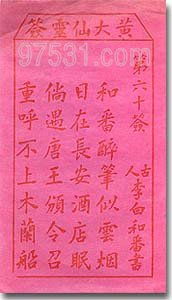 黃大仙靈簽
97531.com
第六十簽
古人 李白和番書
和番醉筆似雲烟
日在長安酒店眠
倘遇唐王頒令召
重呼不上木蘭船